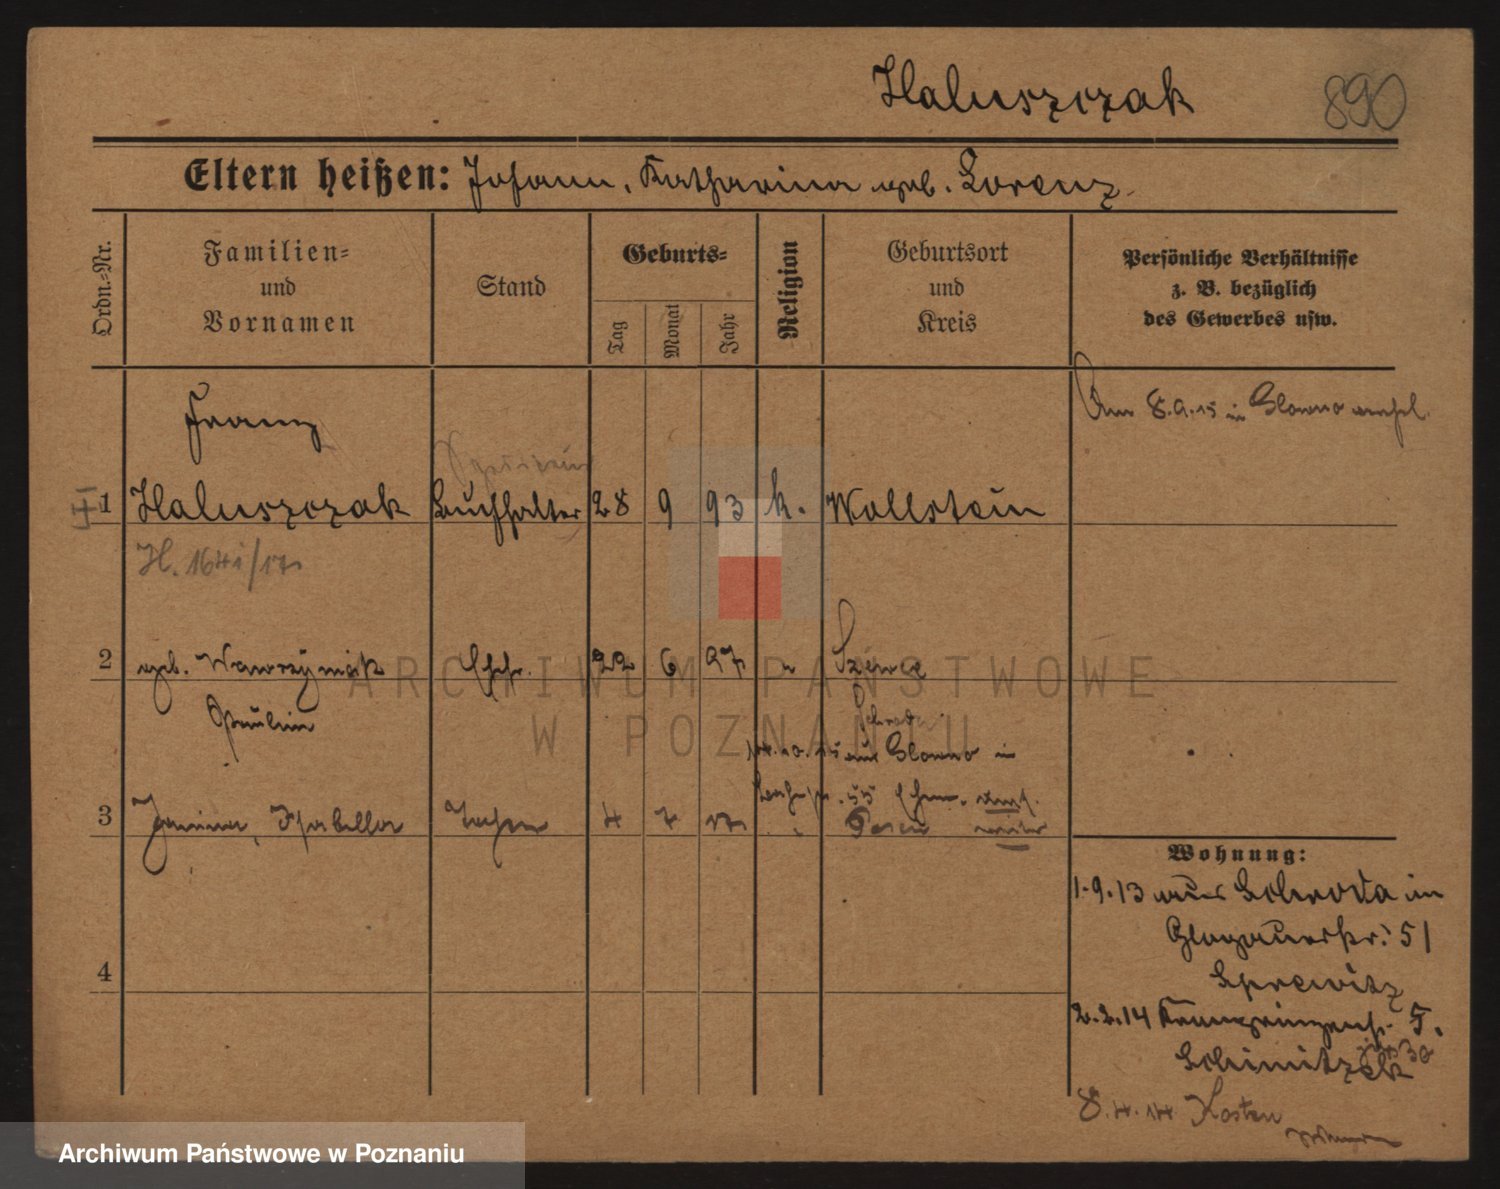 Haluszczak 890
Eltern heißen: Johann, Katharina geb. Lorenz.
Ordn.-Nr.
Familien-
und
Vornamen
Stand
Geburts-
Tag
Monat
Jahr
Religion
Geburtsort
und
Kreis
Persönliche Verhältnisse
z. B. bezüglich
des Gewerbes usw.
Am 8.9.15 in Glowno
Franz
1 Haluszczak Buchhalter 28 9 93 k. Wollstein
H. 1641/17
2 geb. Wawrzyniak Ehefr. 22 6 97 Szewce
Paulina
Schroda
10.15 aus Glowno in
55
3 Janina, Isabella Tochter 4 7 17 Posen
4
Wohnung:
1.9.13 aus Schroda in
Glogauerstr. 51
2.2.14 Kronprinzenstr. 5.
Schimitzek
8.4.14 Kosten
ARCHIWUM PAŃSTWOWE
W POZNANIU
Archiwum Państwowe w Poznaniu